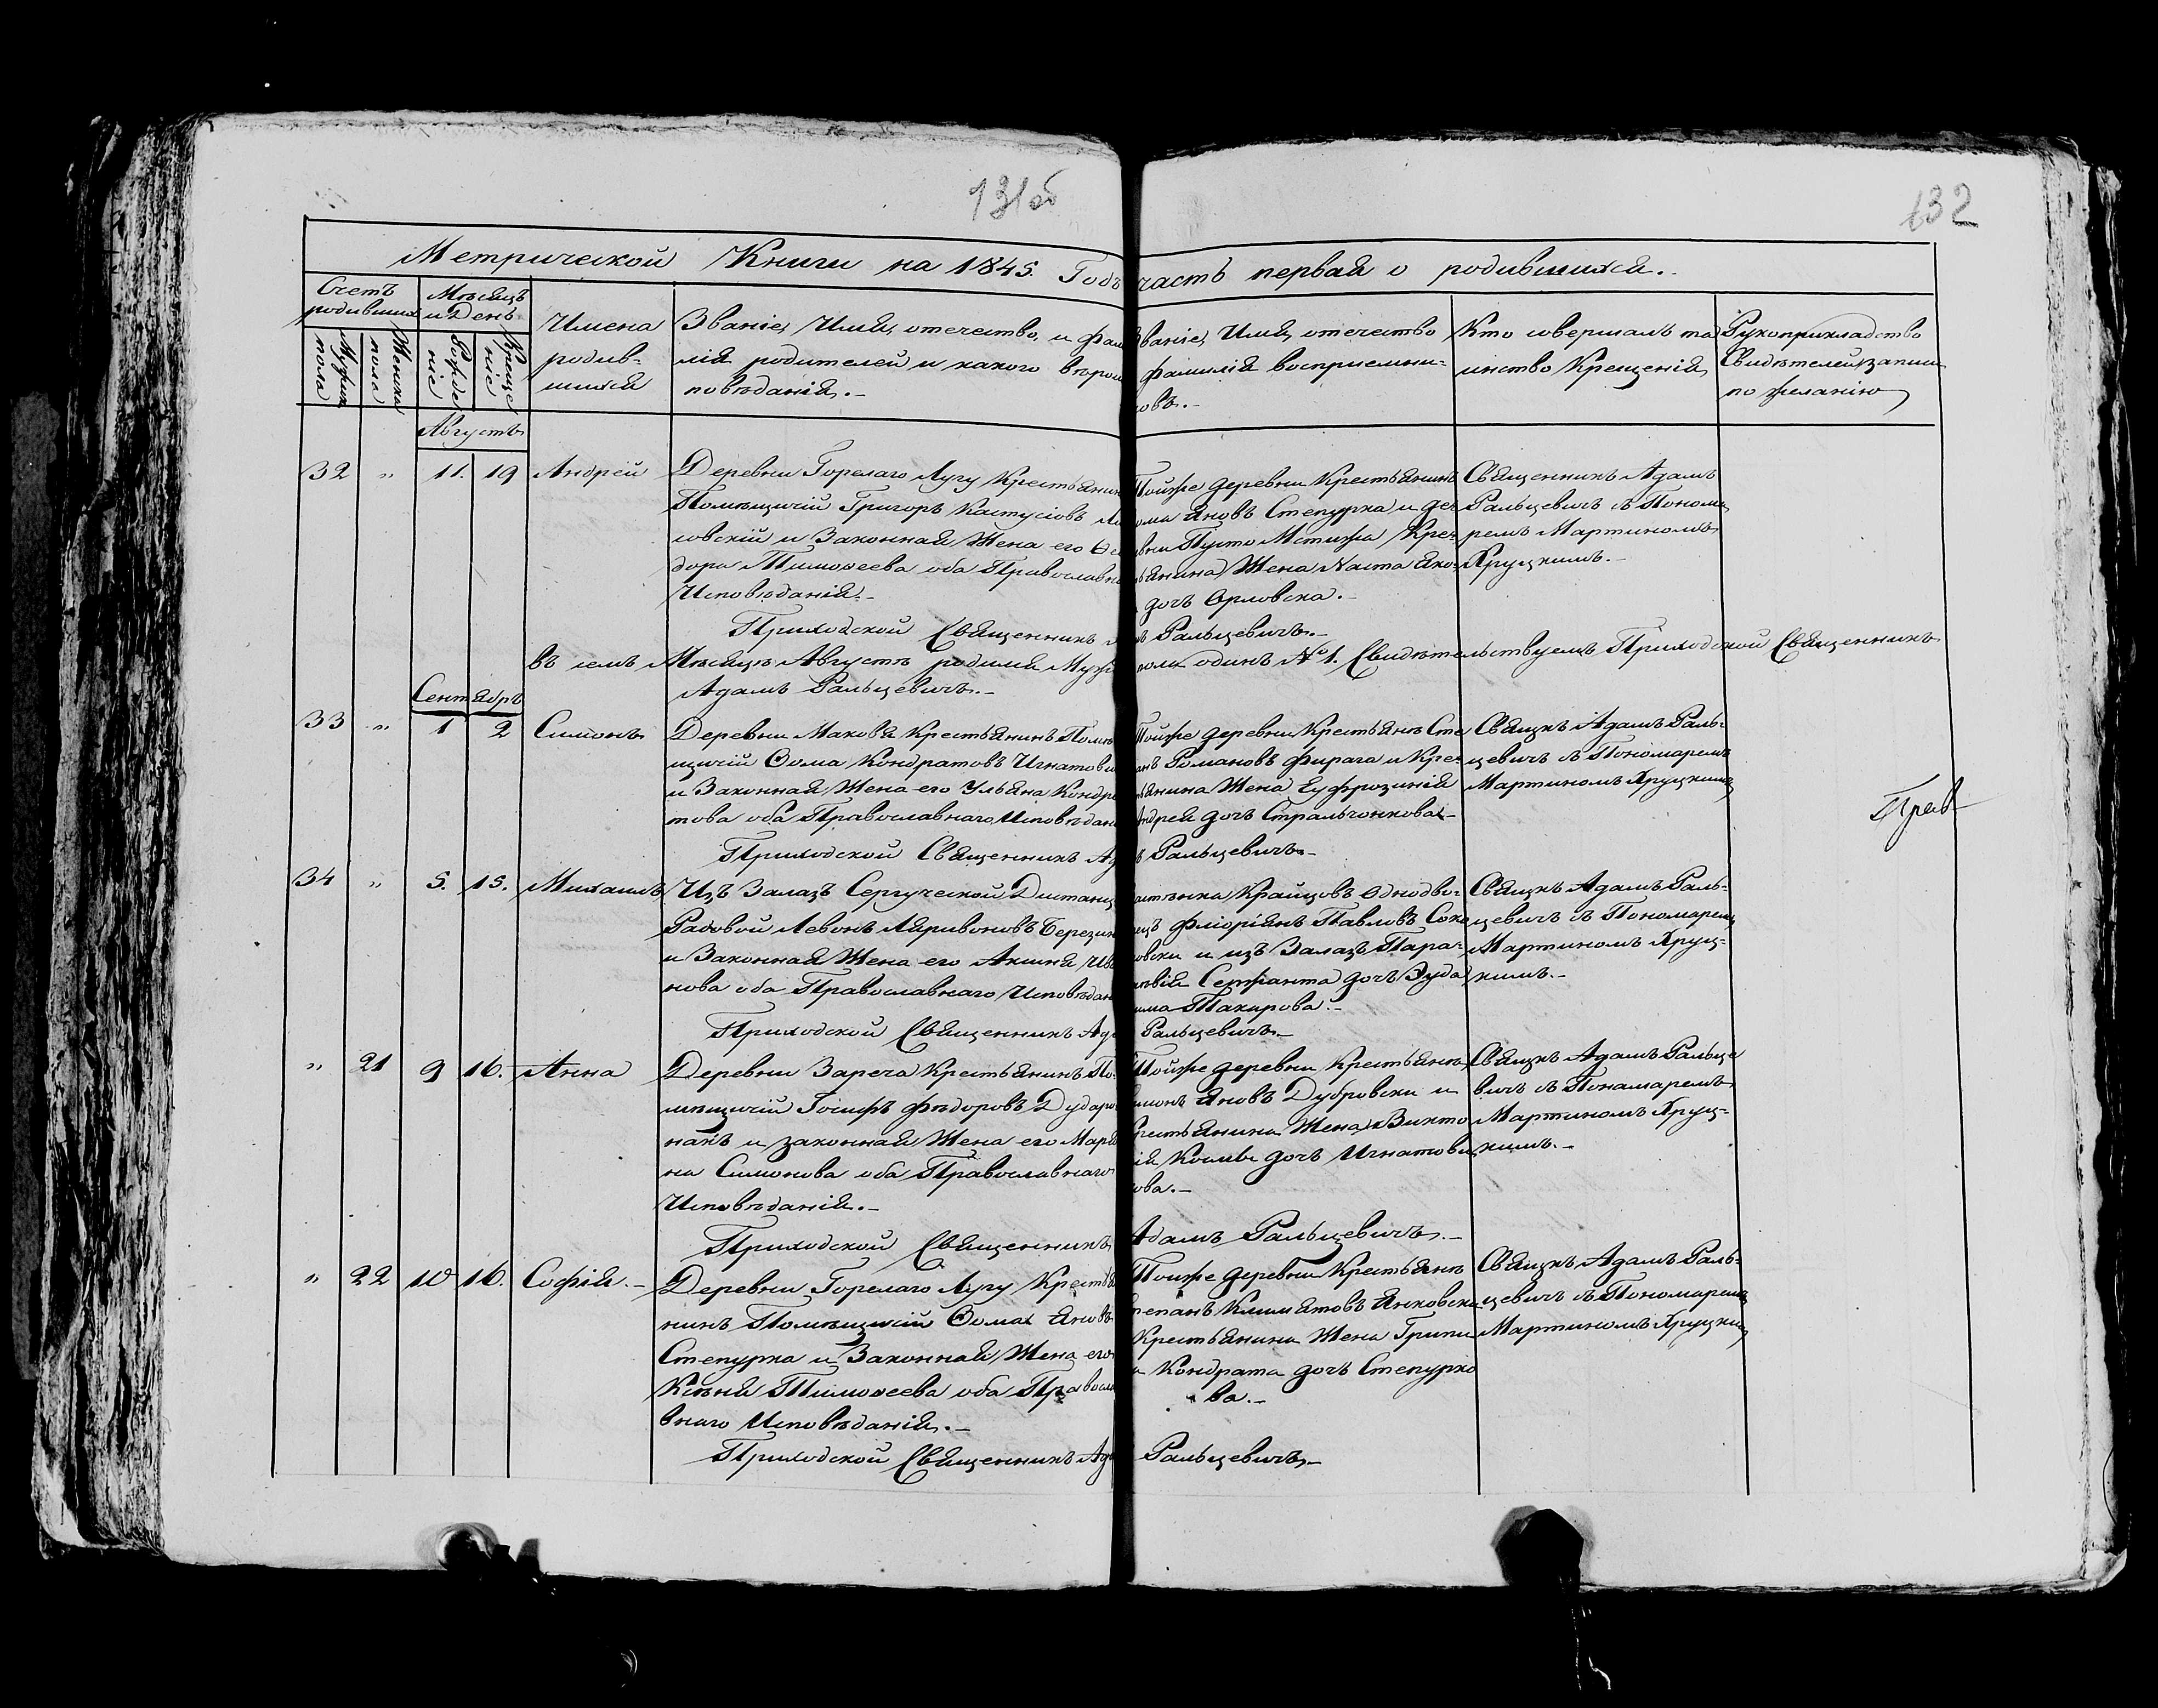 131об
132
Метрической Книги на 1845. Годъ часть первая о родившихся.
Счетъ родивших
Мужеска пола
Женска пола
Мѣсяцъ и День
Рожденіе
Крещеніе
Имена
родив-
шихся
Званіе, Имя, отечество, и фам
лія родителей и какого вѣроис
повѣданія.-
Званіе, Имя, отечество
фамилія воспріемни-
ковъ.-
Кто совершалъ та
инство Крещенія
Рукоприкладство
Свидѣтелей записи
по желанію
Августъ
32 " 11. 19 Андрей
Деревни Горелаго Лугу Крестьянин
Помѣщичій Григоръ Кастусіовъ
ловскій и Законная Жена его Ѳе
дора Тимоѳеева оба Православна
Исповѣданія.-
Тойже деревни Крестьянинъ
ома Яновъ Степурка и де-
вни Пусто Мстижа Кре-
янина Жена Наста Яко-
дочь Орловска.-
Священникъ Адамъ
Ральцевичъ съ Понома
ремъ Мартиномъ
Хруцкимъ.-
Приходской Священникъ Ральцевичъ.-
въ семъ Мѣсяцѣ Августѣ родился Муж пола одинъ № 1. Свидѣтельствуемъ Приходской Священникъ
Адамъ Ральцевичъ.-
Сентябръ
33 " 1 2 Симонъ
Деревни Маковя Крестьянинъ Помѣ
щичій Ѳома Кондратовъ Игнатови
и Законная Жена его Ульяна Кондра
това оба Православнаго Исповѣдан
Тойже деревни Крестьянъ Сте
анъ Романовъ Фирага и Кре-
янина Жена Еуфрозинія
Андрея дочь Стральчонкова-
Свящкъ Адамъ Раль-
цевичъ съ Пономаремъ
Мартиномъ Хруцкимъ
Прав
Приходской Священникъ Ад Ральцевичъ-
34 " 5. 15. Михаилъ
Изъ Залазъ Сергуческой Дистанц
Радовой Левонъ Ляривоновъ Березин
и Законная Жена его Акиня Ива
нова оба Православнаго Исповѣдан
астѣнка Крайцовъ Однодво-
ецъ Фліоріянъ Павловъ Соко
овски и изъ Залазъ Пара-
Сержанта дочь Зуда
има Макарова.-
Свящкъ Адамъ Раль-
цевичъ съ Пономарем
Мартиномъ Хруц-
кимъ.-
Приходской Священникъ Ада Ральцевичъ-
" 21 9 16. Анна
Деревни Зареча Крестьянинъ По-
мѣщичій Іосифъ Фѣдоровъ Дударо
накъ и законная Жена его Марія
на Симонова оба Православнаго
Исповѣданія.-
Тойже деревни Крестьянъ
имонъ Яновъ Дубровски и
Крестьянина Жена Викто
ія Косьмы дочь Игнатови
ова.-
Свящкъ Адамъ Ральце
вичъ съ Понамаремъ
Мартиномъ Хруц-
кимъ.-
Приходской Священникъ Адамъ Ральцевичъ.-
" 22 10 16. Софія.-
Деревни Горелаго Лугу Крестья
нинъ Помѣщичій Ѳома Яновъ
Степурка и Законная Жена его
Ксѣня Тимоѳеева оба Правосла
внаго Исповѣданія.-
Тойже деревни Крестьянъ
тепанъ Климятовъ Янковски
Крестьянина Жена Грипи
Кондрата дочь Степурко
ва.-
Свящкъ Адамъ Раль-
цевичъ съ Пономарем
Мартиномъ Хруцким
Приходской Священникъ Ада Ральцевичъ.-